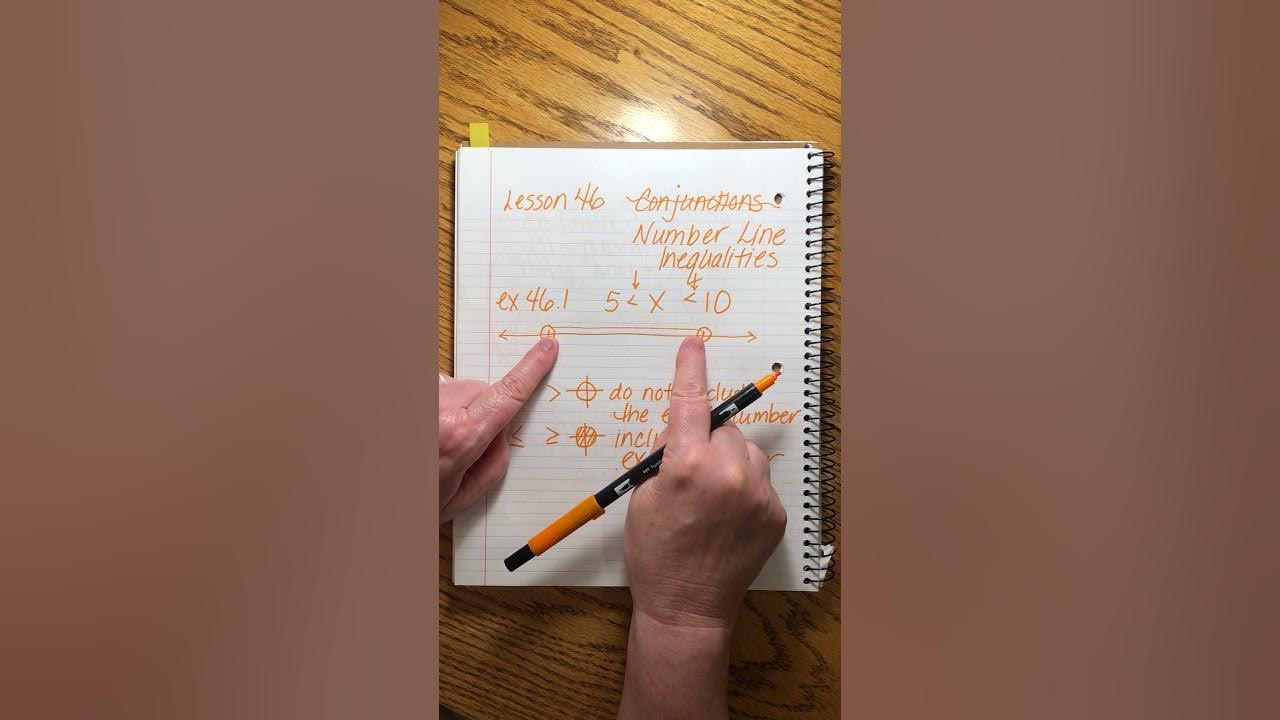 Lesson 46 Conjunctions
Number Line
Inequalities
ex 46.1 5 < x < 10
> do not
the number
≤ ≥